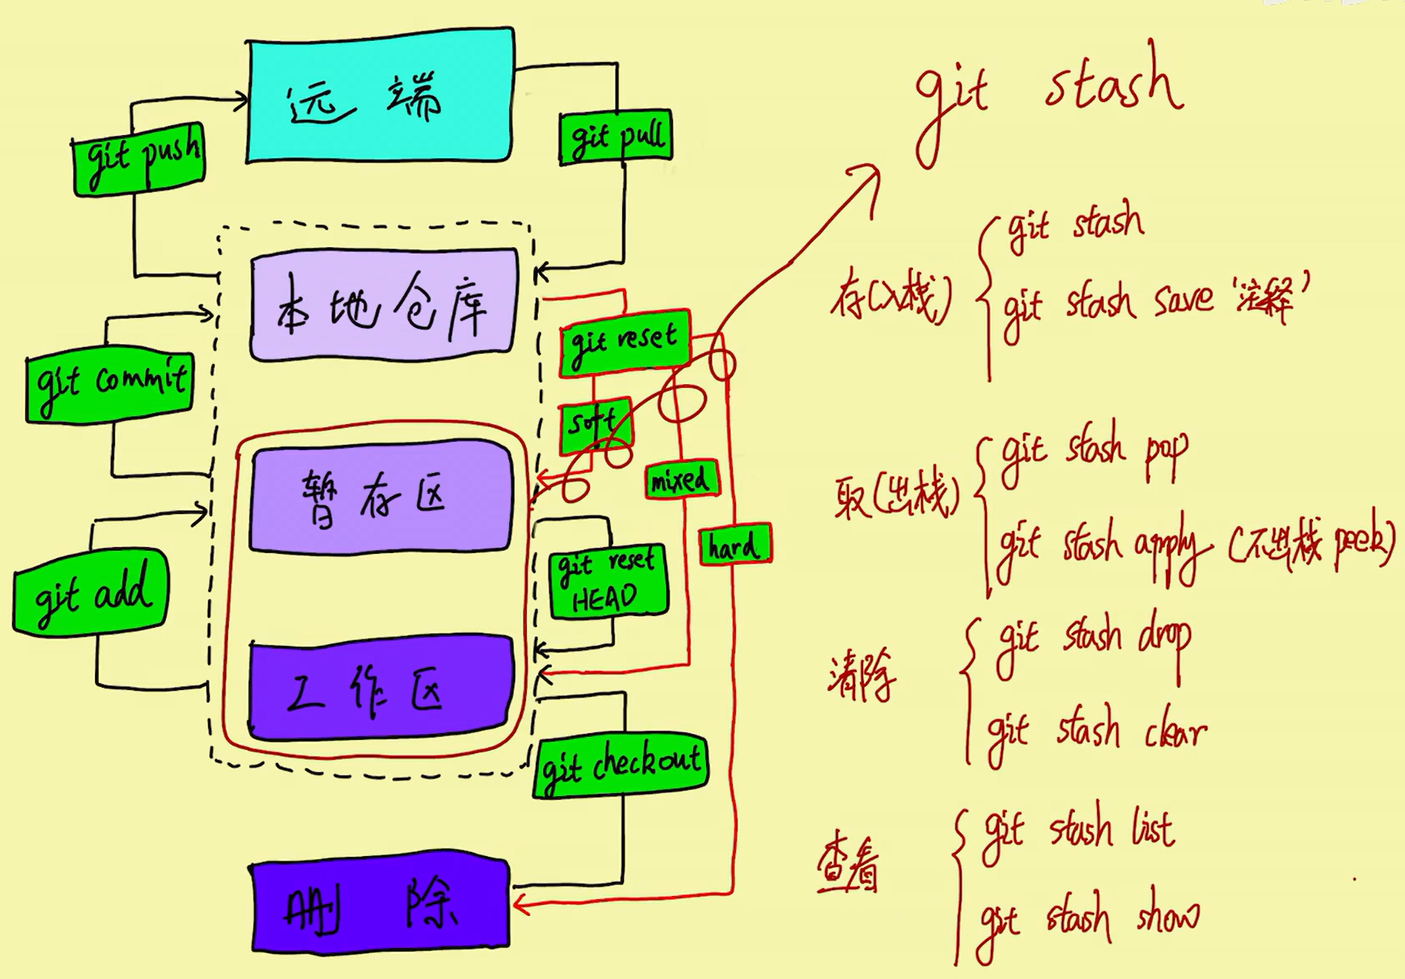 远端
git push
git pull
本地仓库
git commit
git reset
soft
mixed
hard
暂存区
git add
git reset
HEAD
工作区
git checkout
删除
git stash
存(入栈)
git stash
git stash save '注释'
取(出栈)
git stash pop
git stash apply (不出栈 peek)
清除
git stash drop
git stash clear
查看
git stash list
git stash show